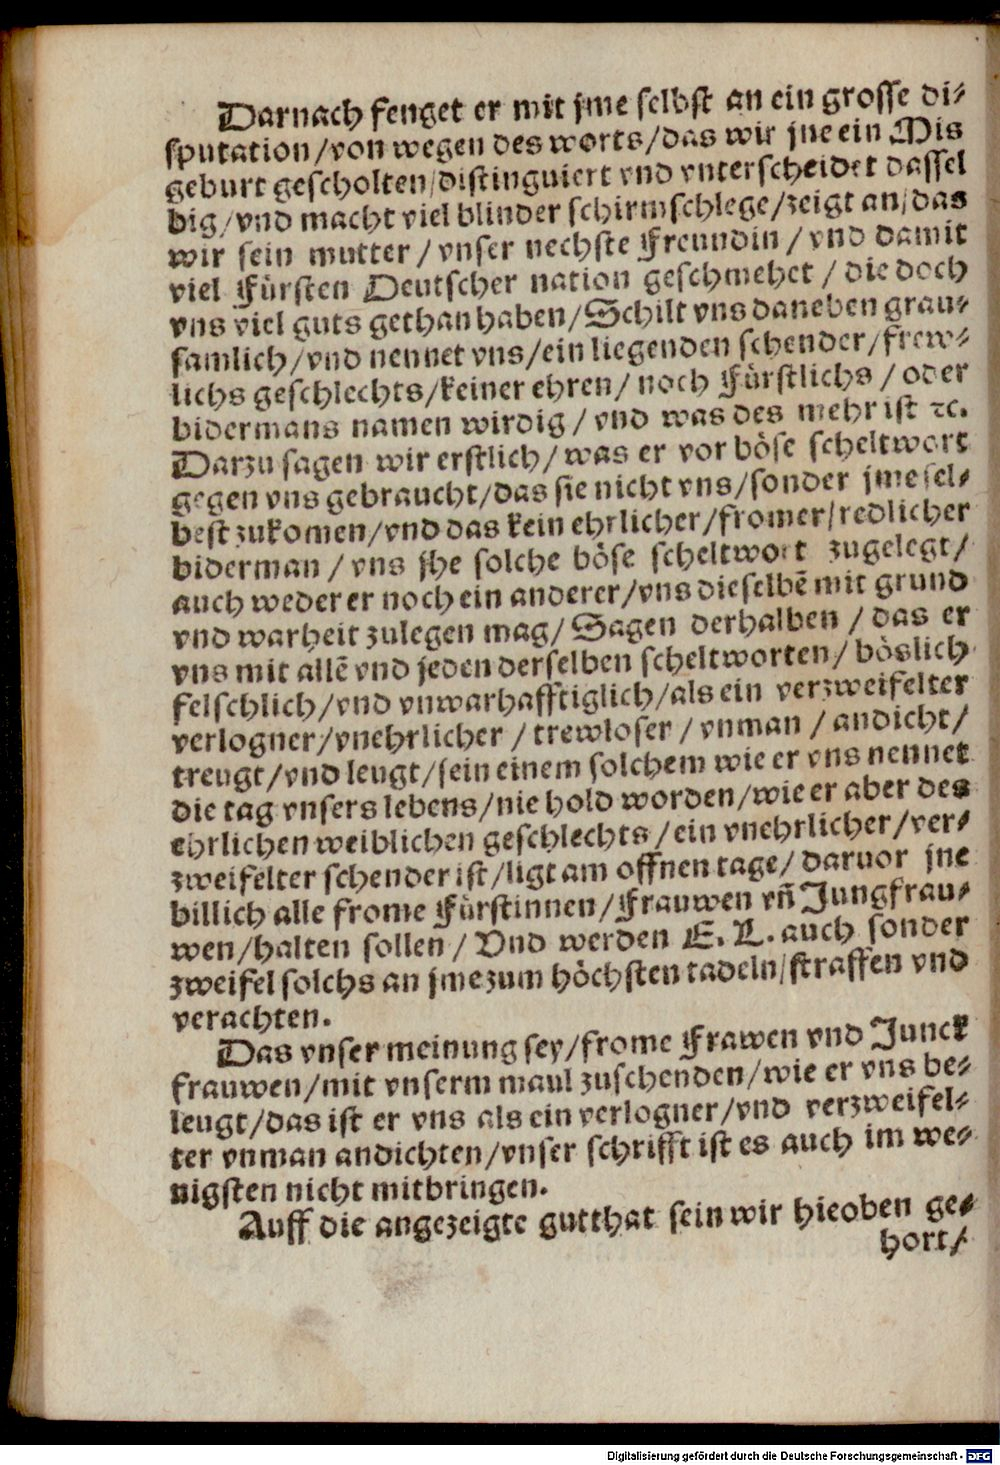 Darnach fenget er mit jme selbst an ein grosse di⸗
sputation/von wegen des worts/das wir jne ein Mis
geburt gescholten/distinguiert vnd vnterscheidet dassel
big/vnd macht viel blinder schirmschlege/zeigt an/das
wir sein mutter/vnser nechste Freundin/vnd damit
viel Fürsten Deutscher nation geschmehet/die doch
vns viel guts gethan haben/Schilt vns daneben grau⸗
samlich/vnd nennet vns/ein liegenden schender/frew⸗
lichs geschlechts/keiner ehren/noch Fürstlichs/oder
bidermans namen wirdig/vnd was des mehr ist ꝛc.
Darzu sagen wir erstlich/was er vor böse scheltwort
gegen vns gebraucht/das sie nicht vns/sonder jme sel⸗
best zukomen/vnd das kein ehrlicher/fromer/redlicher
biderman/vns jhe solche böse scheltwort zugelegt/
auch weder er noch ein anderer/vns dieselbē mit grund
vnd warheit zulegen mag/Sagen derhalben/das er
vns mit allē vnd jeden derselben scheltworten/böslich
felschlich/vnd vnwarhafftiglich/als ein verzweifelter
verlogner/vnehrlicher/trewloser/vnman/andicht/
treugt/vnd leugt/sein einem solchem wie er vns nennet
die tag vnsers lebens/nie hold worden/wie er aber des
ehrlichen weiblichen geschlechts/ein vnehrlicher/ver⸗
zweifelter schender ist/ligt am offnen tage/daruor jne
billich alle frome Fürstinnen/Frauwen vñ Jungfrau⸗
wen/halten sollen/Vnd werden E. L. auch sonder
zweifel solchs an jme zum höchsten tadeln/straffen vnd
verachten.
Das vnser meinung sey/frome Frawen vnd Junck
frauwen/mit vnserm maul zuschenden/wie er vns be⸗
leugt/das ist er vns als ein verlogner/vnd verzweifel⸗
ter vnman andichten/vnser schrifft ist es auch im we⸗
nigsten nicht mitbringen.
Auff die angezeigte gutthat sein wir hieoben ge⸗
hort/
Digitalisierung gefördert durch die Deutsche Forschungsgemeinschaft - DFG